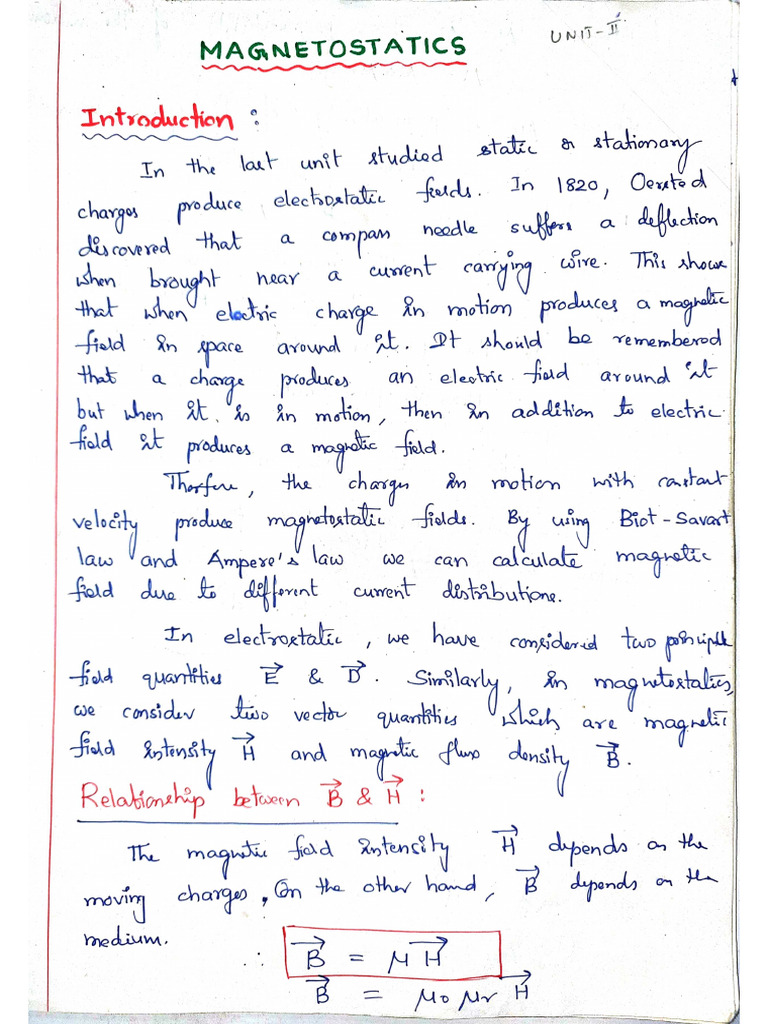 UNIT-II
MAGNETOSTATICS
Introduction :
In the last unit studied static or stationary
charges produce electrostatic fields. In 1820, Oersted
discovered that a compass needle suffers a deflection
when brought near a current carrying wire. This shows
that when electric charge in motion produces a magnetic
field in space around it. It should be remembered
that a charge produces an electric field around it
but when it is in motion, then in addition to electric
field it produces a magnetic field.
Therfore, the charges in motion with constant
velocity produce magnetostatic fields. By using Biot-Savart
law and Ampere's law we can calculate magnetic
field due to different current distributions.
In electrostatic, we have considered two principle
field quantities E⃗ & D⃗. Similarly, in magnetostatics,
we consider two vector quantities which are magnetic
field intensity H⃗ and magnetic flux density B⃗.
Relationship between B⃗ & H⃗ :
The magnetic field intensity H⃗ depends on the
moving charges, On the other hand, B⃗ depends on the
medium.
∴ B⃗ = μH⃗
B⃗ = μ0 μr H⃗